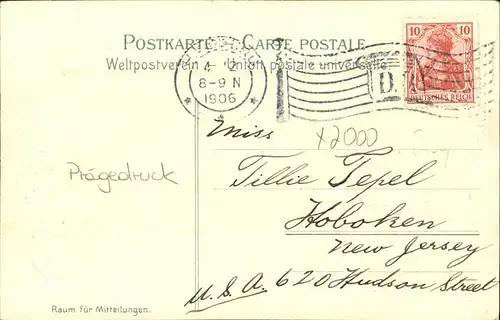 POSTKARTE - CARTE POSTALE
Weltpostverein - Union postale universelle
10 10
DEUTSCHES REICH
4 12
8-9 N
1906
D.
Miss
x2000
Tillie Tepel
Prägedruck
Hoboken
New Jersey
U.S.A. 620 Hudson Street
Raum für Mitteilungen.